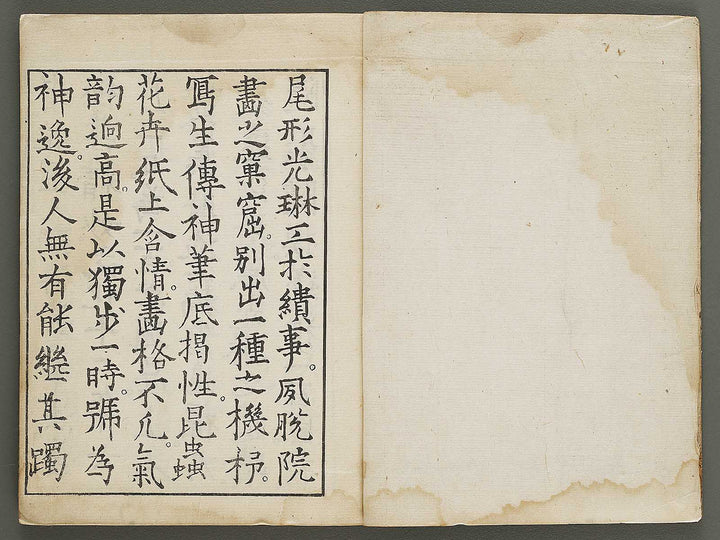 尾形光琳工於繢事。夙脫院
畫之窠窟。別出一種之機杼。
寫生傳神筆底揭性。昆蟲
花卉紙上含情。畫格不凡。氣
韵逈高。是以獨步一時。號為
神逸。後人無有能繼其躅